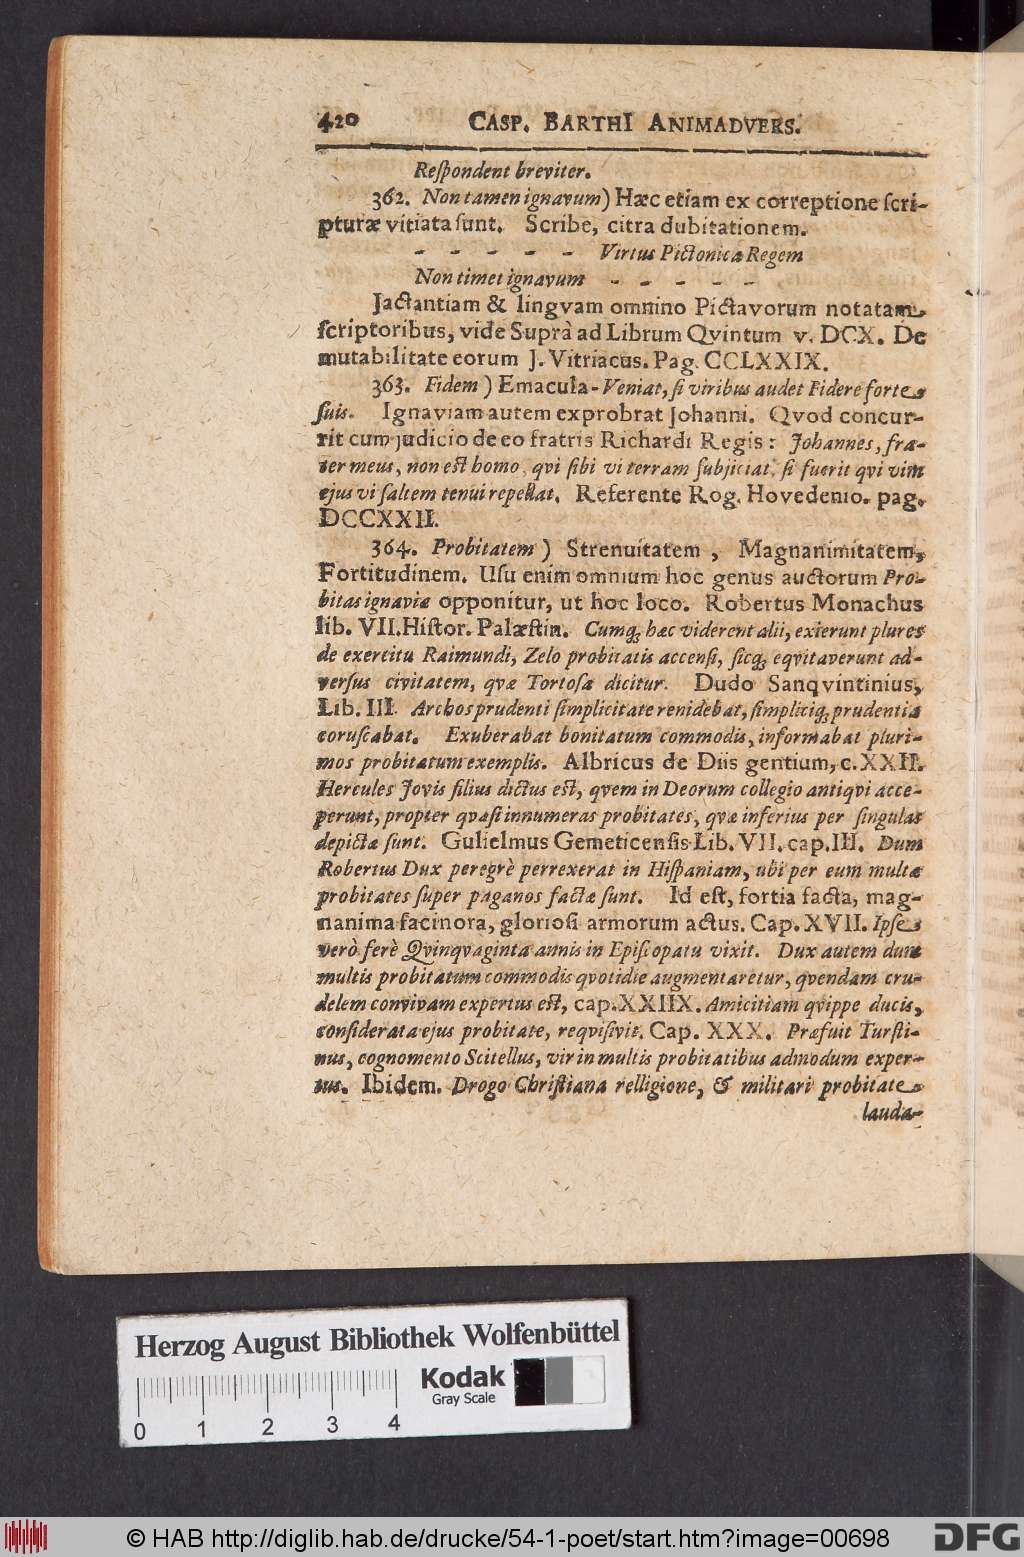 420 CASP. BARTHI ANIMADVERS.
Reſpondent breviter.
362. Non tamen ignavum) Hæc etiam ex correptione ſcri-
pturæ vitiata ſunt. Scribe, citra dubitationem.
- - - - - Virtus Pictonica Regem
Non timet ignavum - - - - -
Jactantiam & lingvam omnino Pictavorum notatam
ſcriptoribus, vide Suprà ad Librum Qvintum v. DCX. De
mutabilitate eorum J. Vitriacus. Pag. CCLXXIX.
363. Fidem) Emacula-Veniat, ſi viribus audet Fidere forte
ſuis. Ignaviam autem exprobrat Johanni. Qvod concur-
rit cum judicio de eo fratris Richardi Regis: Johannes, fra-
ter meus, non eſt homo, qvi ſibi vi terram ſubjiciat, ſi fuerit qvi vim
ejus vi ſaltem tenui repellat. Referente Rog. Hovedenio. pag.
DCCXXII.
364. Probitatem) Strenuitatem, Magnanimitatem,
Fortitudinem. Uſu enim omnium hoc genus auctorum Pro-
bitas ignaviæ opponitur, ut hoc loco. Robertus Monachus
lib. VII. Hiſtor. Palæſtin. Cumq; hæc viderent alii, exierunt plures
de exercitu Raimundi, Zelo probitatis accenſi, ſicq; eqvitaverunt ad-
verſus civitatem, qvæ Tortoſa dicitur. Dudo Sanqvintinius,
Lib. III. Archos prudenti ſimplicitate renidebat, ſimpliciq; prudentia
coruſcabat. Exuberabat bonitatum commodis, informabat pluri-
mos probitatum exemplis. Albricus de Diis gentium, c. XXII.
Hercules Jovis filius dictus eſt, qvem in Deorum collegio antiqvi acce-
perunt, propter qvaſi innumeras probitates, qvæ inferius per ſingulas
depictæ ſunt. Gulielmus Gemeticenſis Lib. VII. cap. III. Dum
Robertus Dux peregrè perrexerat in Hiſpaniam, ubi per eum multæ
probitates ſuper paganos factæ ſunt. Id eſt, fortia facta, mag-
nanima facinora, glorioſi armorum actus. Cap. XVII. Ipſe
verò ferè Qvinqvaginta annis in Epiſcopatu vixit. Dux autem dum
multis probitatum commodis qvotidie augmentaretur, qvendam cru-
delem convivam expertus eſt, cap. XXIIX. Amicitiam qvippe ducis,
conſiderata ejus probitate, reqviſivit. Cap. XXX. Præfuit Turſti-
nus, cognomento Scitellus, vir in multis probitatibus admodum exper-
tus. Ibidem. Drogo Chriſtiana relligione, & militari probitate
lauda-
Herzog August Bibliothek Wolfenbüttel
Kodak
Gray Scale
0 1 2 3 4
© HAB http://diglib.hab.de/drucke/54-1-poet/start.htm?image=00698
DFG